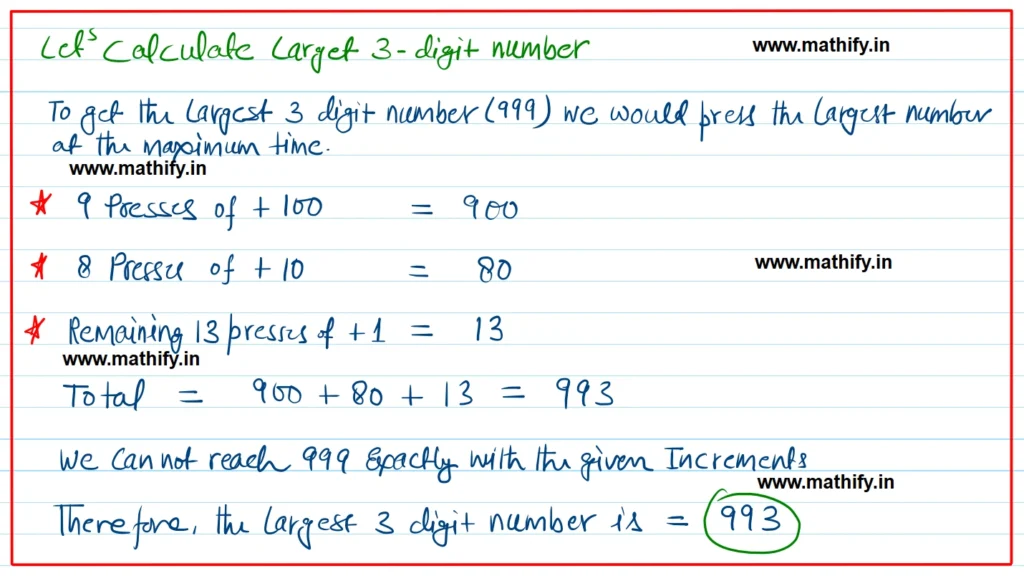 Let's Calculate Larget 3-digit number
www.mathify.in
To get the largest 3 digit number (999) we would press the largest number
at the maximum time.
www.mathify.in
* 9 Presses of + 100 = 900
* 8 Presses of + 10 = 80
www.mathify.in
* Remaining 13 presses of +1 = 13
www.mathify.in
Total = 900 + 80 + 13 = 993
We Can not reach 999 Exactly with the given Increments
www.mathify.in
Therefore, the largest 3 digit number is = 993